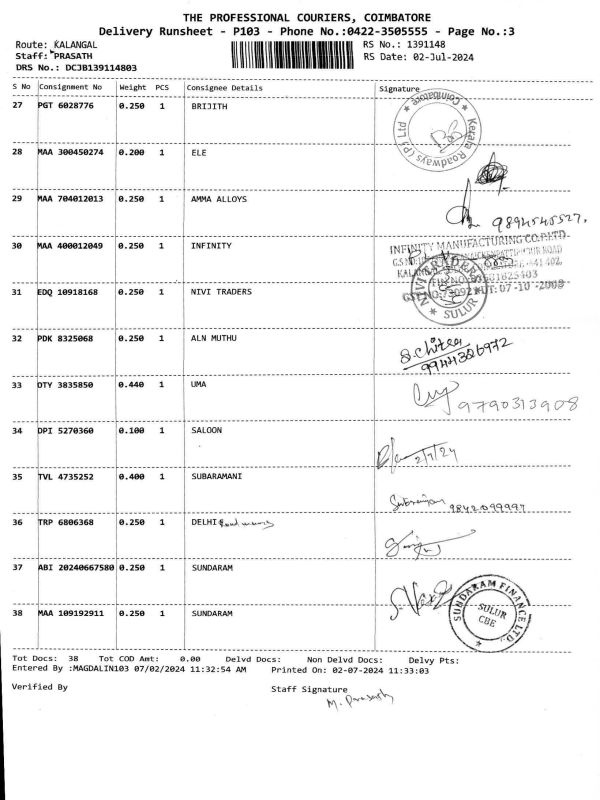 THE PROFESSIONAL COURIERS, COIMBATORE
Delivery Runsheet - P103 - Phone No.:0422-3505555 - Page No.:3
Route: KALANGAL RS No.: 1391148
Staff: PRASATH RS Date: 02-Jul-2024
DRS No.: DCJB139114803
S No Consignment No Weight PCS Consignee Details Signature
27 PGT 6028776 0.250 1 BRIJITH
Kerala Roadways (P) Ltd * Coimbatore *
28 MAA 300450274 0.200 1 ELE
29 MAA 704012013 0.250 1 AMMA ALLOYS
9894545527.
30 MAA 400012049 0.250 1 INFINITY
INFINITY MANUFACTURING CO.P.LTD.
31 EDQ 10918168 0.250 1 NIVI TRADERS
NIVI TRADERS * SULUR *
07-10-2009
32 PDK 8325068 0.250 1 ALN MUTHU
9944386972
33 OTY 3835850 0.440 1 UMA
9790313908
34 DPI 5270360 0.100 1 SALOON
2/7/24
35 TVL 4735252 0.400 1 SUBARAMANI
9842099997
36 TRP 6806368 0.250 1 DELHI
37 ABI 20240667580 0.250 1 SUNDARAM
38 MAA 109192911 0.250 1 SUNDARAM
SUNDARAM FINANCE LTD. * SULUR CBE
Tot Docs: 38 Tot COD Amt: 0.00 Delvd Docs: Non Delvd Docs: Delvy Pts:
Entered By :MAGDALIN103 07/02/2024 11:32:54 AM Printed On: 02-07-2024 11:33:03
Verified By Staff Signature
M. Prasath